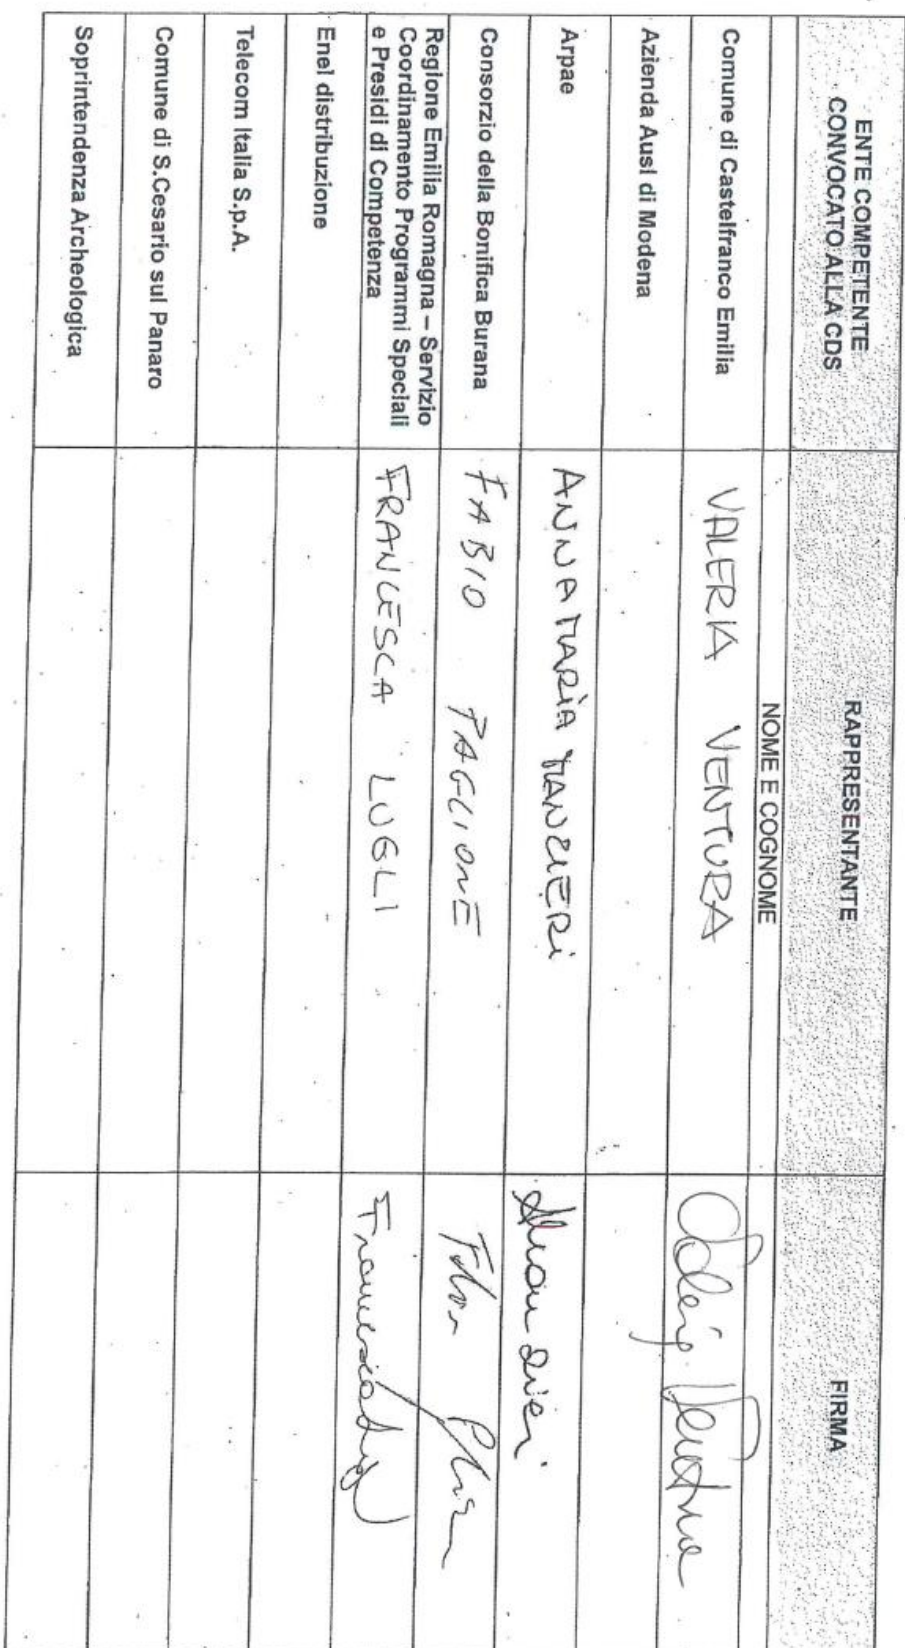 ENTE COMPETENTE
CONVOCATO ALLA CDS
RAPPRESENTANTE
FIRMA
NOME E COGNOME
Comune di Castelfranco Emilia
VALERIA VENTURA
Valeria Ventura
Azienda Ausl di Modena
Arpae
ANNA MARIA MANZIERI
Consorzio della Bonifica Burana
FABIO PAGLIONE
Regione Emilia Romagna – Servizio
Coordinamento Programmi Speciali
e Presidi di Competenza
FRANCESCA LUGLI
Francesca Lugli
Enel distribuzione
Telecom Italia S.p.A.
Comune di S.Cesario sul Panaro
Soprintendenza Archeologica